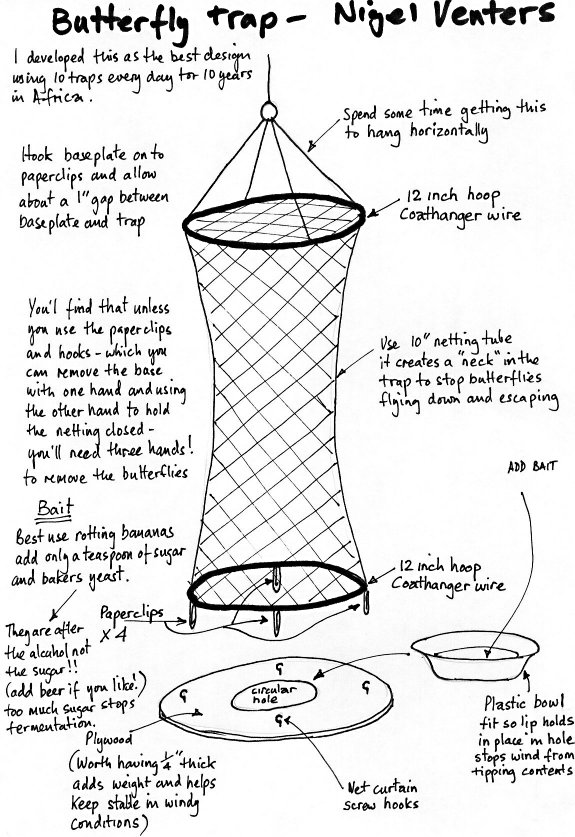 Butterfly trap - Nigel Venters
I developed this as the best design
using 10 traps every day for 10 years
in Africa.
Spend some time getting this
to hang horizontally
Hook baseplate on to
paperclips and allow
about a 1" gap between
baseplate and trap
12 inch hoop
Coathanger wire
You'l find that unless
you use the paperclips
and hooks - which you
can remove the base
with one hand and using
the other hand to hold
the netting closed -
you'll need three hands!
to remove the butterflies
Use 10" netting tube
it creates a "neck" in the
trap to stop butterflies
flying down and escaping
ADD BAIT
Bait
Best use rotting bananas
add only a teaspoon of sugar
and bakers yeast.
12 inch hoop
Coathanger wire
Paperclips
x 4
They are after
the alcohol not
the sugar!!
(add beer if you like!)
too much sugar stops
fermentation.
circular
hole
Plastic bowl
fit so lip holds
in place in hole
stops wind from
tipping contents
Plywood
(Worth having 1/4" thick
adds weight and helps
keep stable in windy
conditions)
Net curtain
screw hooks